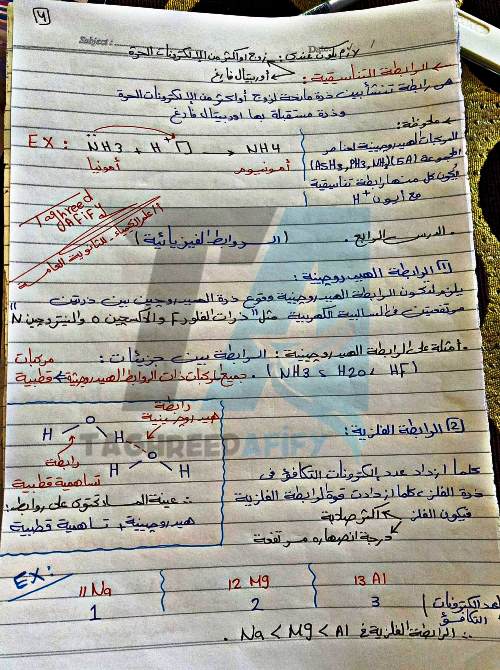 4
Subject:
Date:
لازم يكون عندي: زوج أو أكثر من الإلكترونات الحرة
أوربيتال فارغ
الرابطة التناسقية:
هى رابطة تنشأ بين ذرة مانحة لزوج أو أكثر من الإلكترونات الحرة
وذرة مستقبلة بها أوربيتال فارغ
ملحوظة:
المركبات الهيدروجينية لعناصر
المجموعة (5A) (AsH3, PH3, NH3)
يكون كل منها رابطة تناسقية
مع أيون H+
EX: NH3 + H+ → NH4
أمونيا أمونيوم
Taghreed
Afify
الدرس الرابع. (الروابط الفيزيائية)
1 الرابطة الهيدروجينية:
يلزم لتكون الرابطة الهيدروجينية وقوع ذرة الهيدروجين بين ذرتين
مرتفعتين فى السالبية الكهربية مثل "ذرات الفلور F والأكسجين O والنيتروجين N"
أمثلة على الرابطة الهيدروجينية: الرابطة بين جزيئات: مركبات
(NH3 , H2O , HF) . جميع المركبات ذات الروابط الهيدروجينية قطبية
رابطة
هيدروجينية
O
H H
O
H H
رابطة
تساهمية قطبية
TAGHREED AFIFY
∴ عينة الماء تحتوى على روابط:
هيدروجينية, تساهمية قطبية
2 الرابطة الفلزية:
كلما ازداد عدد إلكترونات التكافؤ فى
ذرة الفلز، كلما ازدادت قوة الرابطة الفلزية
فيكون الفلز أكثر صلادة
درجة انصهاره مرتفعة
EX:
11Na 12Mg 13Al
عدد إلكترونات التكافؤ
1 2 3
∴ الرابطة الفلزية فى Na < Mg < Al .